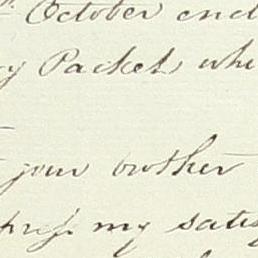 October end
y Packet whi
your brother
press my satis